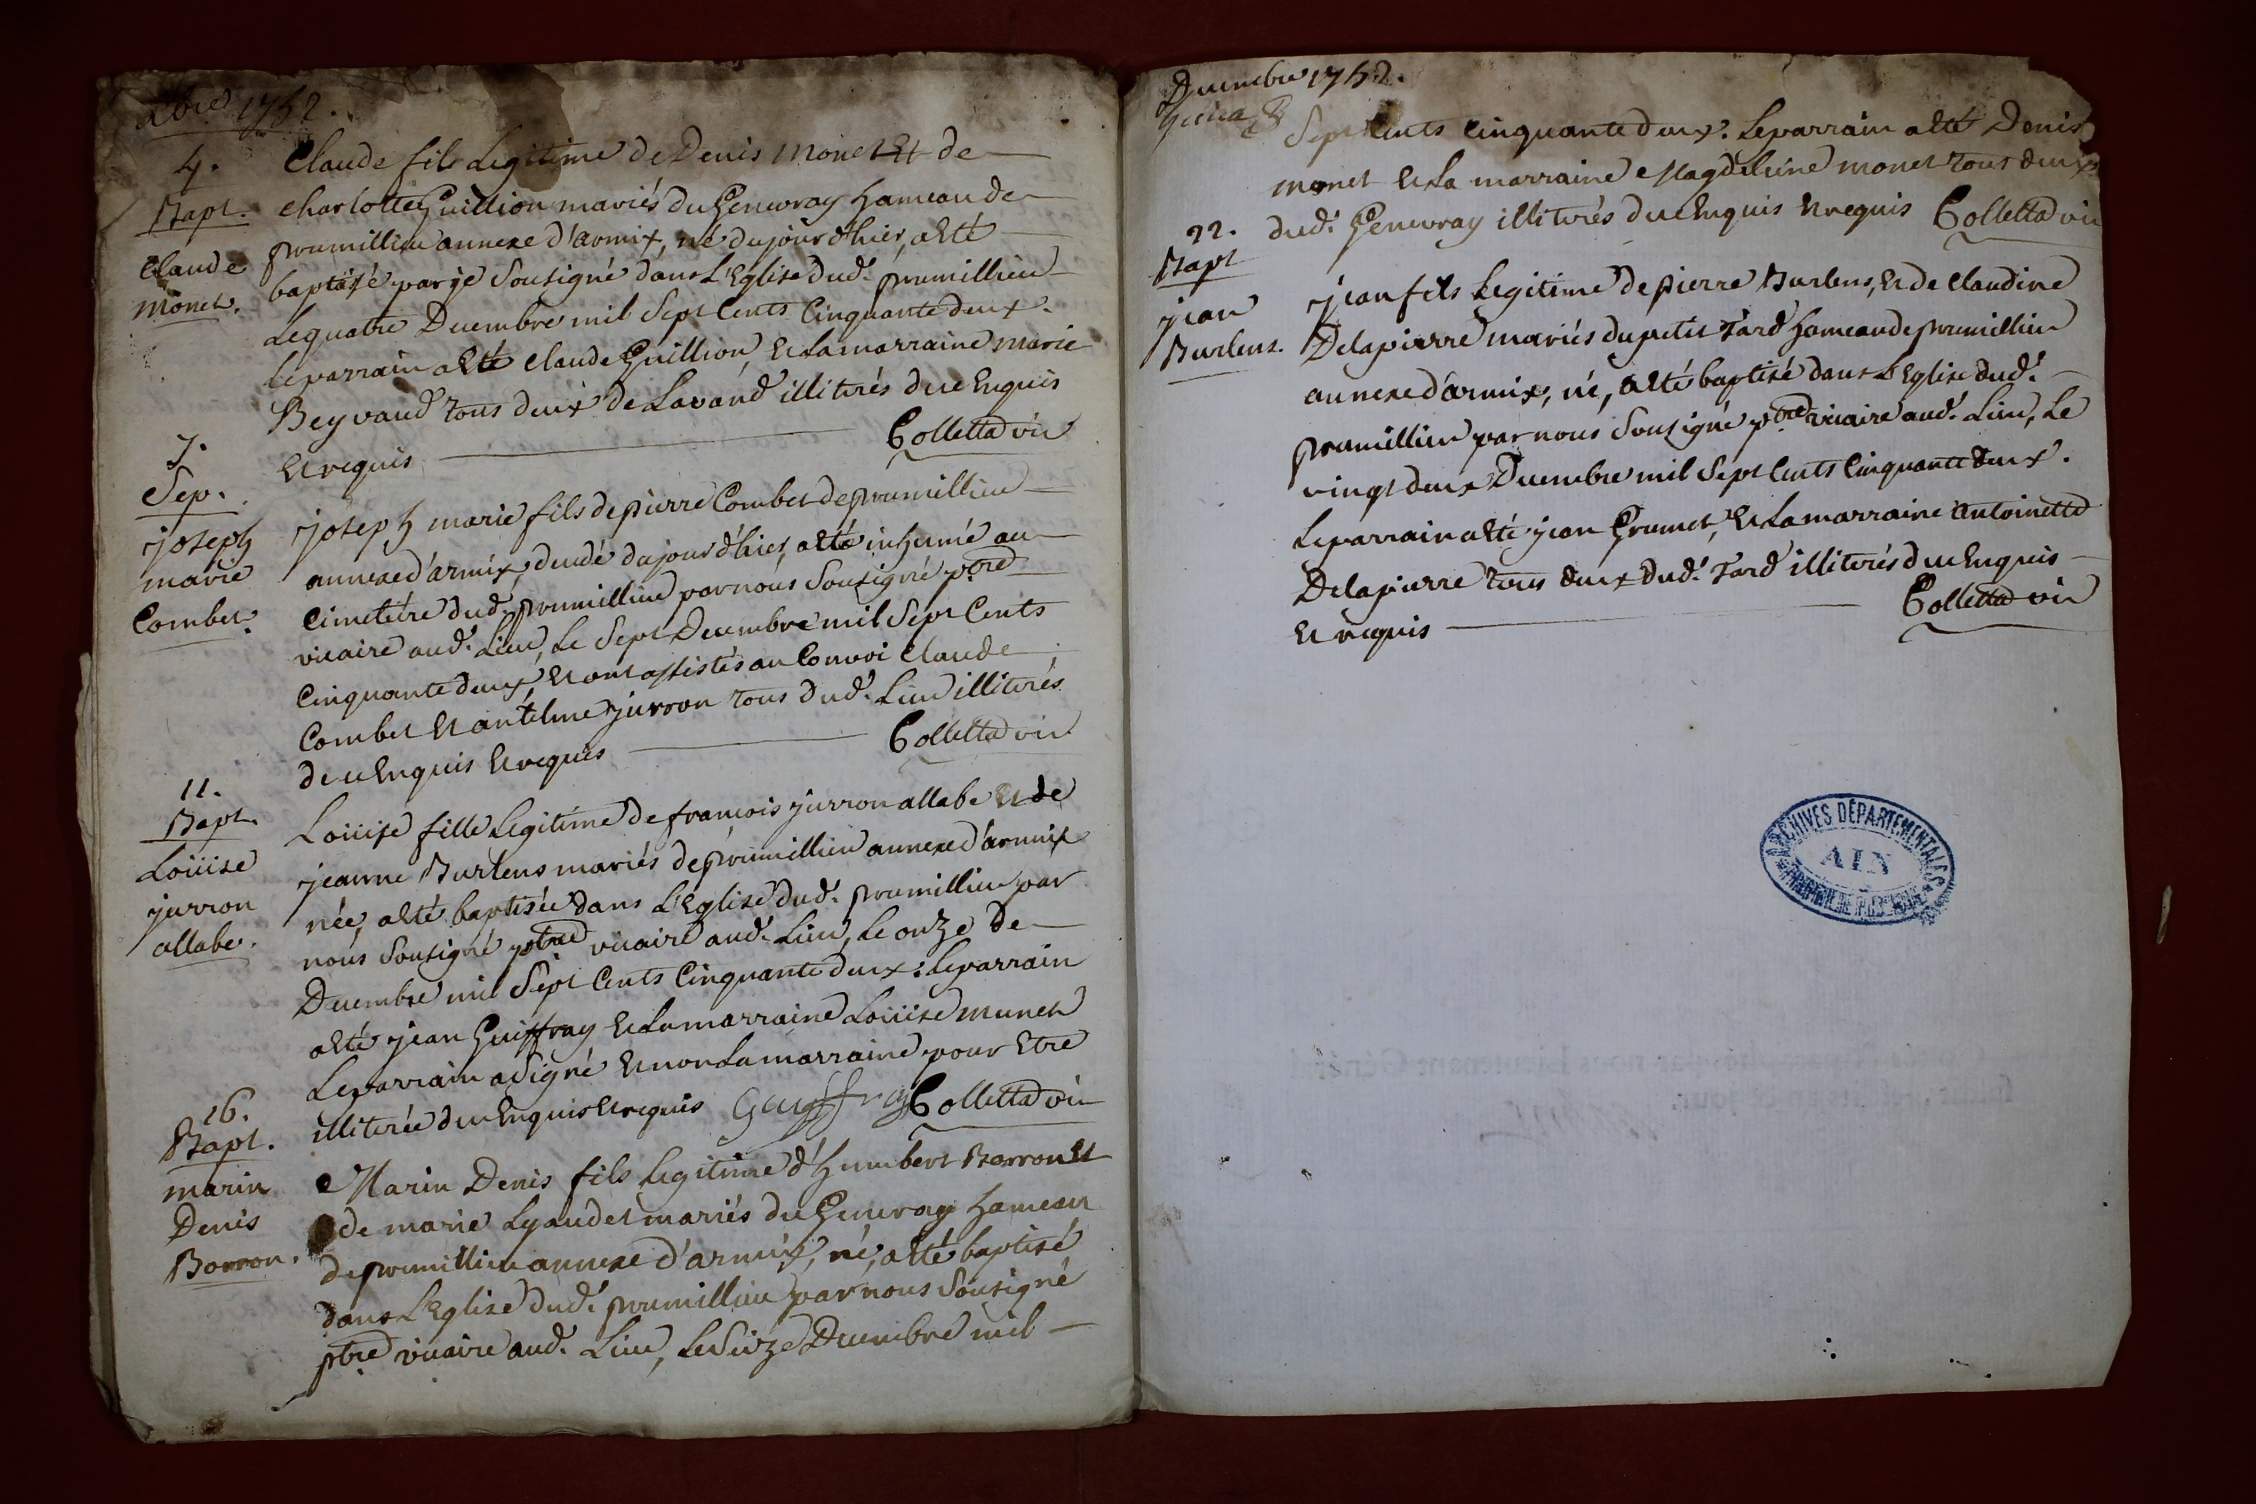 xbre 1752.
4.
Bapt.
Claude
Monet.
Claude fils Legitime de Denis Monet Et de
Charlotte Guillion mariés du Genevray hameau de
prumillieu annexe d'armix, né dujourd'hier, a Eté
baptisé par je Sousigné dans L'Eglise dud. prumillieu
Le quatre Decembre mil Sept Cents Cinquante deux.
Le parrain a Eté Claude Guillion, Et La marraine Marie
Beyvaud tous deux de Lavand illiterés de ce Enquis
Et requis Colletta vic
7.
Sep.
joseph
marie
Combet.
joseph marie fils de pierre Combet de prumillieu
annexe d'armix, decedé dujourd'hier, a Eté inhumé au
Cimetière dud. prumillieu par nous Sousigné ptre
vicaire aud. Lieu, Le Sept Decembre mil Sept Cents
Cinquante deux, Et ont assistés au Convoi Claude
Combet Et antelme jurron tous dud. Lieu illiterés
de ce Enquis Et requis Colletta vic
11.
Bapt.
Loüise
jurron
allabe.
Loüise fille Legitime de françois jurron allabe Et de
jeanne Burlens mariés de prumillieu annexe d'armix
née, a Eté baptisée dans L'Eglise dud. prumillieu par
nous Sousigné ptre vicaire aud. Lieu, Le onze de
Decembre mil Sept Cents Cinquante deux. Le parrain
a Eté jean Guiffray Et La marraine Loüise munet
Le parrain a Signé Et non La marraine pour Etre
illiterée de ce Enquis Et requis Guyffray Colletta vic
16.
Bapt.
marin
Denis
Borron.
Marin Denis fils Legitime d'humbert Borron Et
de marie Lyaudet mariés du Genevray hameau
de prumillieu annexe d'armix, né, a Eté baptisé
dans L'Eglise dud. prumillieu par nous Sousigné
ptre vicaire aud. Lieu, Le Seize Decembre mil
Decembre 1752.
Sept Cents Cinquante deux. Le parrain a Eté Denis
monet Et La marraine Magdeleine monet tous deux
dud. Genevray illiterés de ce Enquis Et requis Colletta vic
22.
Bapt
jean
Burlens.
jean fils Legitime de pierre Burlens, Et de Claudine
Delapierre mariés du petit Tard hameau de prumillieu
annexe d'armix, né, a Eté baptisé dans L'Eglise dud.
prumillieu par nous Sousigné ptre vicaire aud. Lieu, Le
vingt deux Decembre mil Sept Cents Cinquante deux.
Le parrain a Eté jean Grumet, Et La marraine antoinette
Delapierre tous deux dud. Tard illiterés de ce Enquis
Et requis Colletta vic
ARCHIVES DÉPARTEMENTALES
AIN